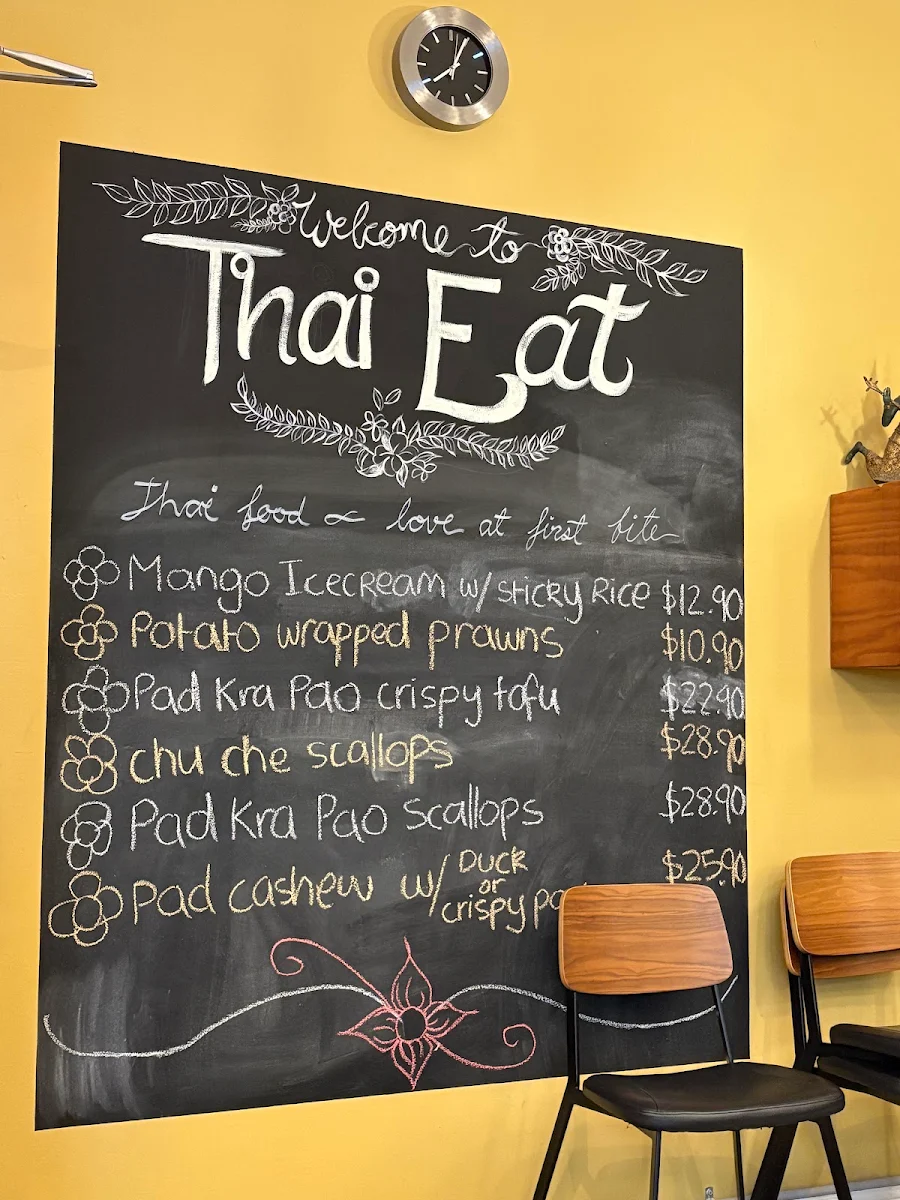 Welcome to
Thai Eat
Thai food ∝ love at first bite
Mango Icecream w/ sticky Rice $12.90
Potato wrapped prawns $10.90
Pad Kra Pao crispy tofu $22.90
chu che scallops $28.90
Pad Kra Pao scallops $28.90
Pad cashew w/ Duck or crispy $25.90